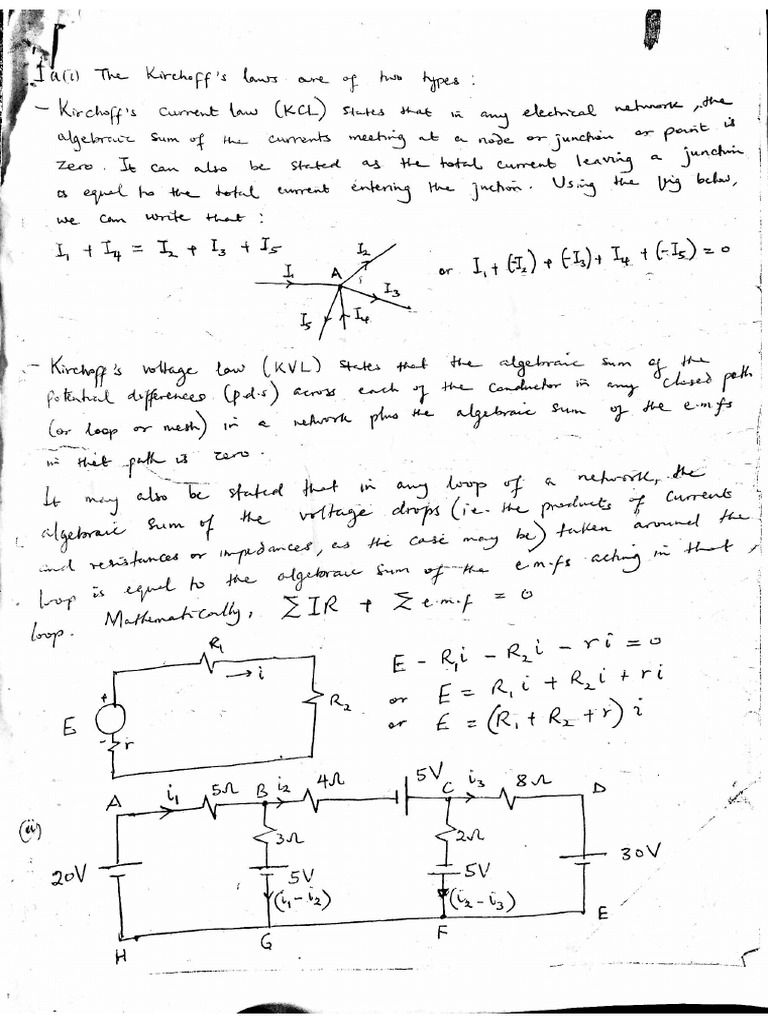 1a(i) The Kirchoff's laws are of two types:
- Kirchoff's current law (KCL) states that in any electrical network, the
algebraic sum of the currents meeting at a node or junction or point is
zero. It can also be stated as the total current leaving a junction
is equal to the total current entering the juction. Using the fig below,
we can write that:
I₁ + I₄ = I₂ + I₃ + I₅
I₁
A
I₂
I₃
I₅
I₄
or I₁ + (-I₂) + (-I₃) + I₄ + (-I₅) = 0
- Kirchoff's voltage law (KVL) states that the algebraic sum of the
potential differences (p.d.s) across each of the conductor in any closed path
(or loop or mesh) in a network plus the algebraic sum of the e.m.fs
in that path is zero.
It may also be stated that in any loop of a network, the
algebraic sum of the voltage drops (i.e. the products of currents
and resistances or impedances, as the case may be) taken around the
loop is equal to the algebraic sum of the e.m.fs acting in that
loop. Mathematically, ΣIR + Σe.m.f = 0
R₁
→ i
R₂
E
+
-
r
E - R₁i - R₂i - ri = 0
or E = R₁i + R₂i + ri
or E = (R₁ + R₂ + r) i
(ii)
A i₁ 5Ω B i₂ 4Ω 5V C i₃ 8Ω D
3Ω 2Ω
20V 5V 5V 30V
(i₁ - i₂) (i₂ - i₃)
H G F E